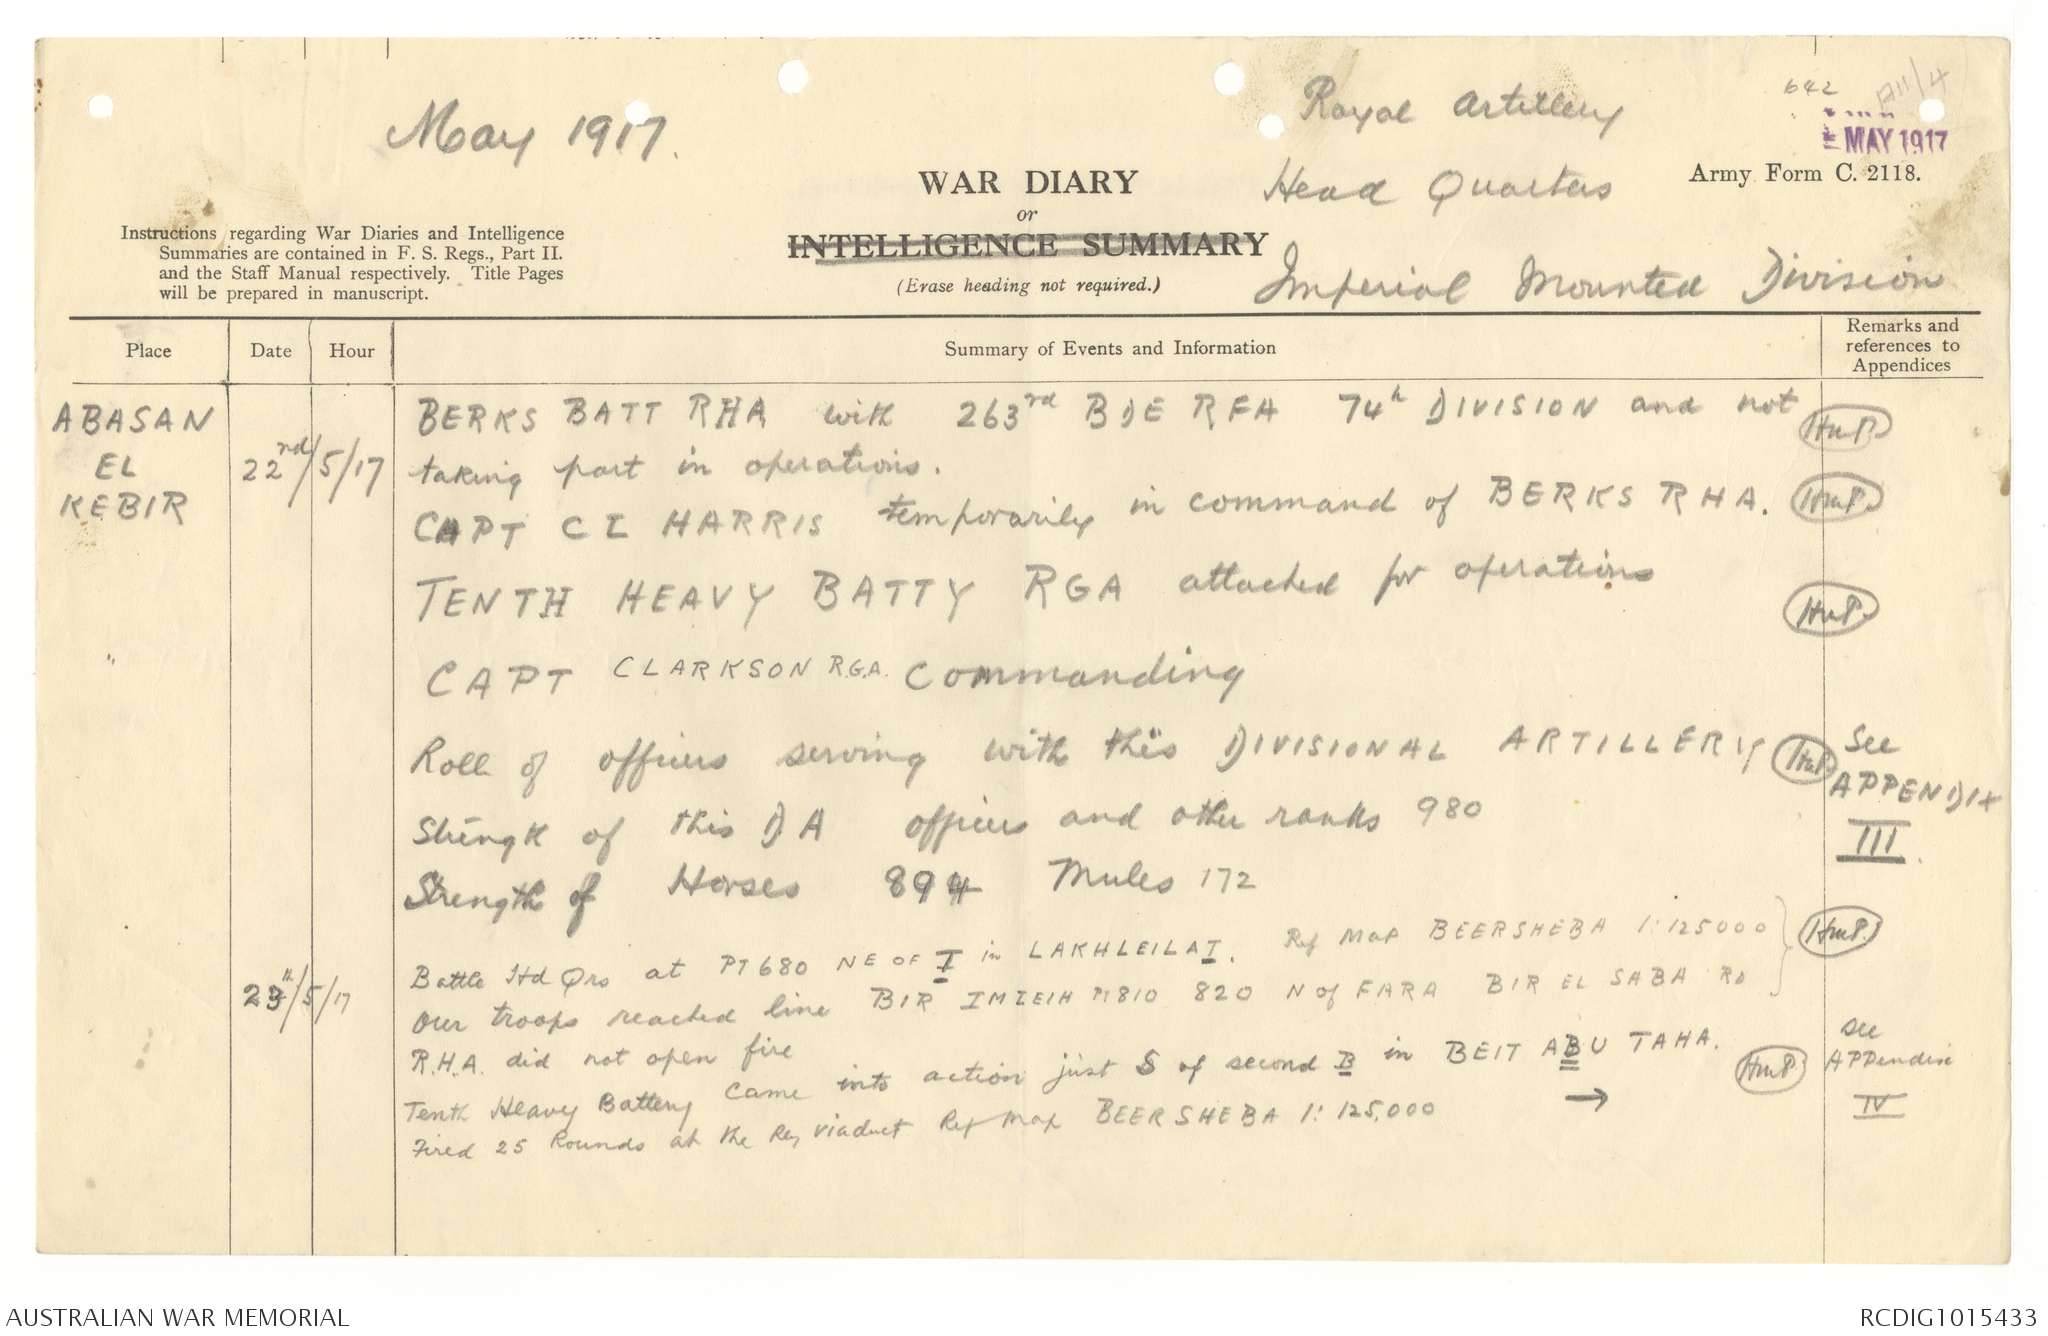 May 1917.
Royal Artillery
Head Quarters
Imperial Mounted Division
642
A11/4
MAY 1917
Army Form C. 2118.
WAR DIARY
or
INTELLIGENCE SUMMARY
(Erase heading not required.)
Instructions regarding War Diaries and Intelligence
Summaries are contained in F. S. Regs., Part II.
and the Staff Manual respectively. Title Pages
will be prepared in manuscript.
Place
Date
Hour
Summary of Events and Information
Remarks and
references to
Appendices
ABASAN
EL
KEBIR
22nd/5/17
BERKS BATT RHA with 263rd BDE RFA 74th DIVISION and not
taking part in operations.
CAPT C I HARRIS temporarily in command of BERKS RHA.
TENTH HEAVY BATTY RGA attached for operations
"
CAPT CLARKSON R.G.A. Commanding
Roll of officers serving with this DIVISIONAL ARTILLERY
See
APPENDIX
III.
Strength of this DA officers and other ranks 980
Strength of Horses 894 Mules 172
23th/5/17
Battle Hd Qrs at PT 680 NE OF I in LAKHLEILAT. Ref Map BEERSHEBA 1:125000
Our troops reached line BIR IMLEIH PT 810 820 N of FARA BIR EL SABA RD
R.H.A. did not open fire
Tenth Heavy Battery came into action just S of second B in BEIT ABU TAHA. →
Fired 25 Rounds at the Ry viaduct Ref Map BEERSHEBA 1:125,000
HmP.
HmP.
HmP.
HmP.
HmP.
HmP.
See
APPendix
IV
AUSTRALIAN WAR MEMORIAL
RCDIG1015433